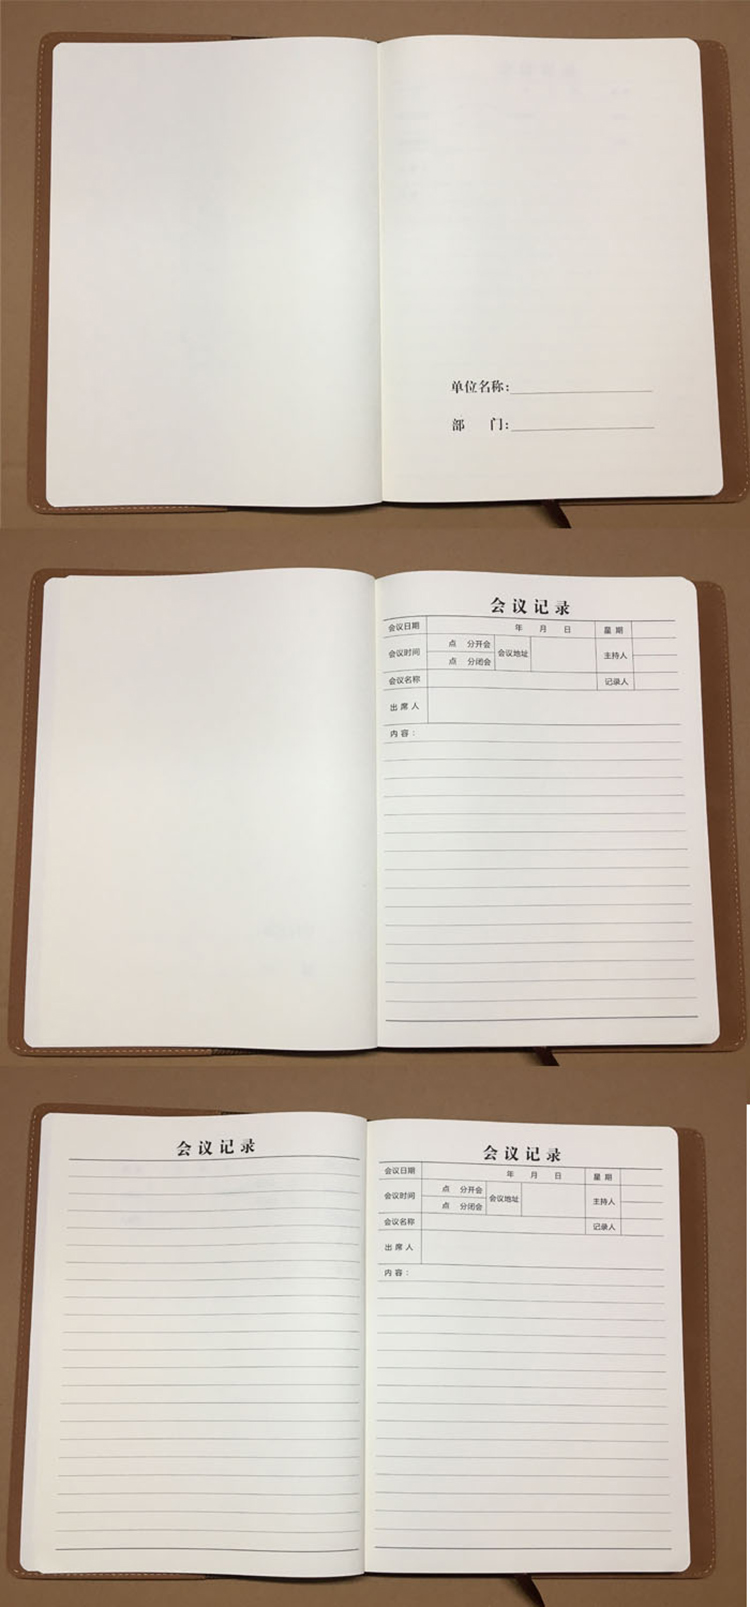 单位名称:
部 门:
会议记录
会议日期 年 月 日 星期
会议时间 点 分开会 会议地址 主持人
点 分闭会
会议名称 记录人
出席人
内容:
会议记录
会议记录
会议日期 年 月 日 星期
会议时间 点 分开会 会议地址 主持人
点 分闭会
会议名称 记录人
出席人
内容: